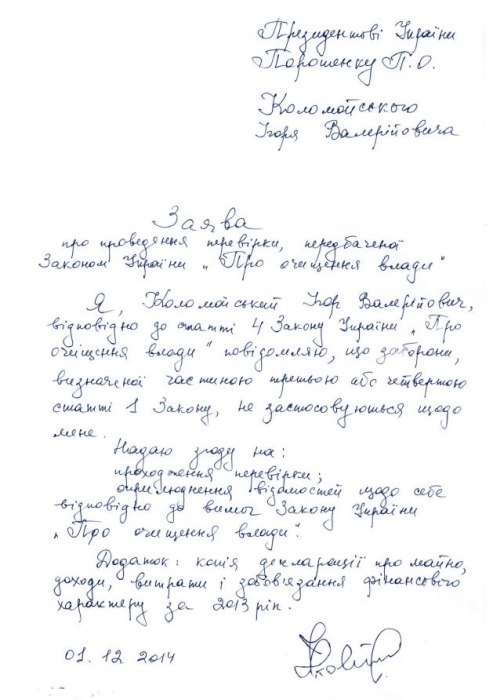 Президентові України
Порошенку П.О.
Коломойського
Ігоря Валерійовича
Заява
про проведення перевірки, передбаченої
Законом України „Про очищення влади"
Я, Коломойський Ігор Валерійович,
відповідно до статті 4 Закону України „Про
очищення влади" повідомляю, що заборони,
визначеної частиною третьою або четвертою
статті 1 Закону, не застосовуються щодо
мене.
Надаю згоду на:
проходження перевірки;
оприлюднення відомостей щодо себе
відповідно до вимог Закону України
„Про очищення влади".
Додаток: копія декларації про майно,
доходи, витрати і зобов'язання фінансового
характеру за 2013 рік.
01. 12 2014